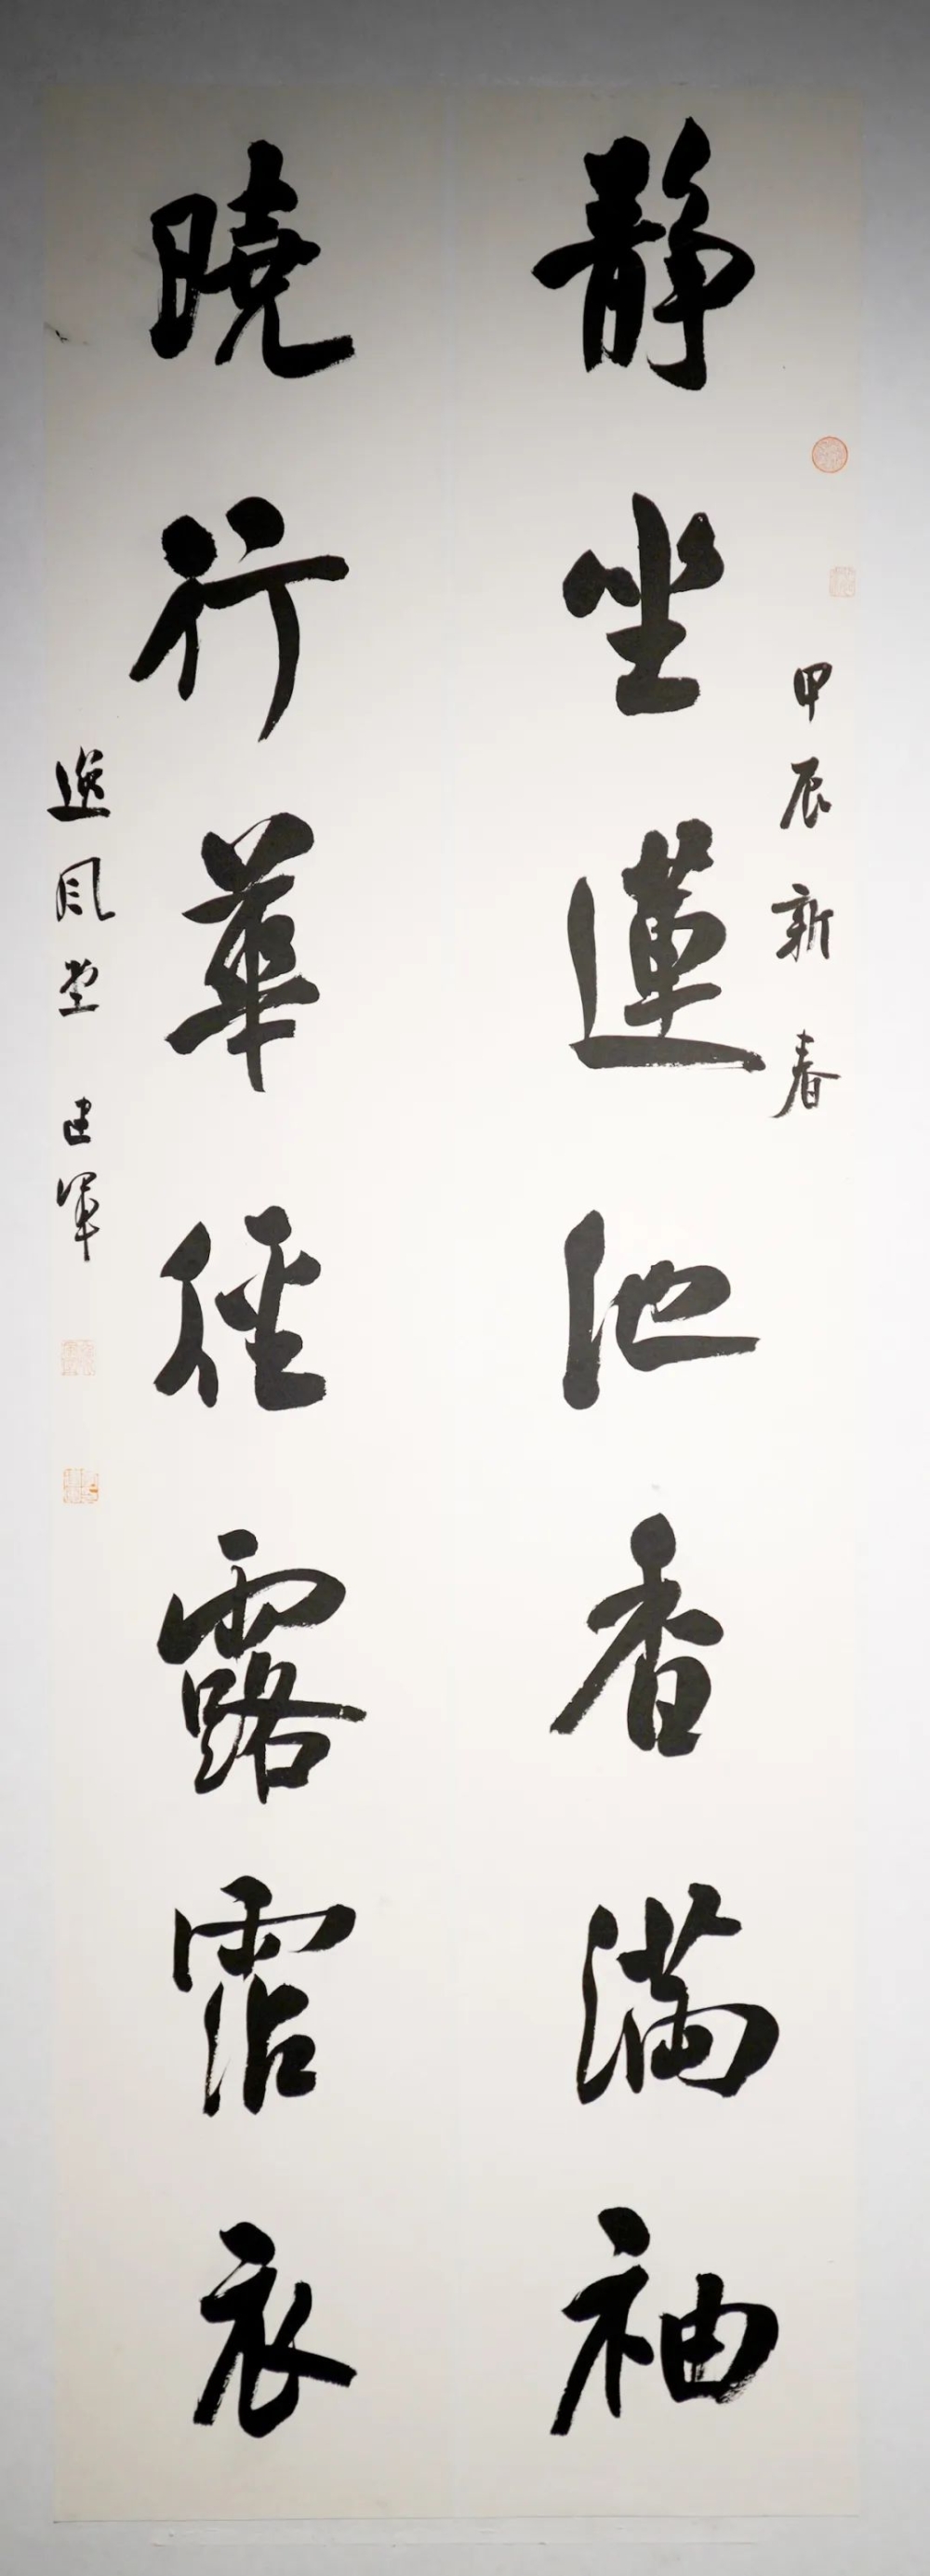 甲辰新春
靜坐蓮池香滿袖
曉行華徑露霑衣
逸風堂 建軍